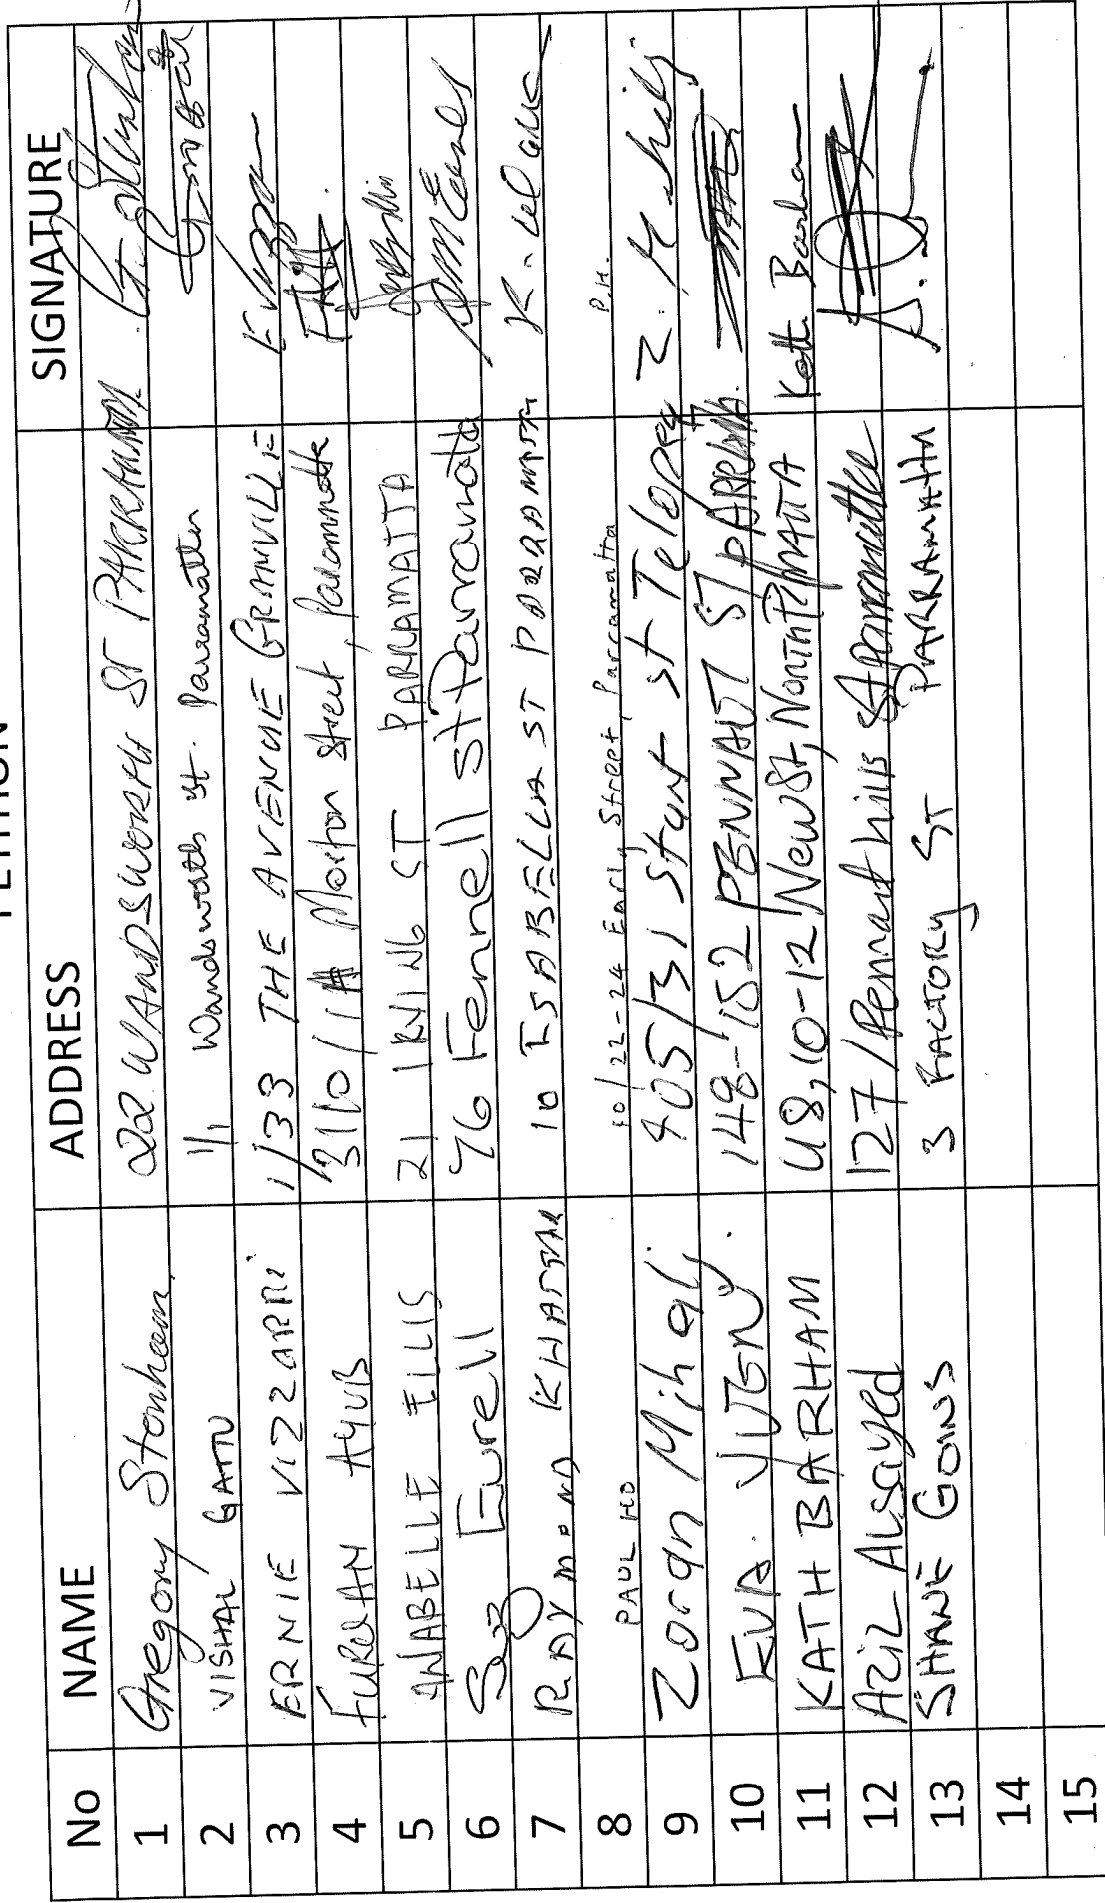 PETITION
No NAME ADDRESS SIGNATURE
1 Gregory Stonham 22 WANDSWORTH ST PARRAMATTA
2 VISHAL GATTU 1/1 Wandsworth st. Parramatta
3 ERNIE VIZZARRI 1/33 THE AVENUE GRANVILLE
4 FURQAN AYUB 3110/1A Morton Street, Parammatta
5 ANABELLE ELLIS 21 IRVING ST PARRAMATTA
6 Sue Eurell 76 Fennell st Parramatta
7 RAYMOND KHATTAR 10 ISABELLA ST PARRAMATTA
8 PAUL HO 10/22-24 Early Street, Parramatta P.H.
9 Zoran Mihalj 405/31 Sturt st Telopea Z. Mihalj
10 EVA 148-152 PENNANT ST PARRAMATTA
11 KATH BARHAM U8, 10-12 New St, NORTH P/MATTA Kath Barham
12 AZIZ ALSAYED 127/Pennant hills St Parramatta
13 SHANE GOINS 3 FACTORY ST PARRAMATTA
14
15